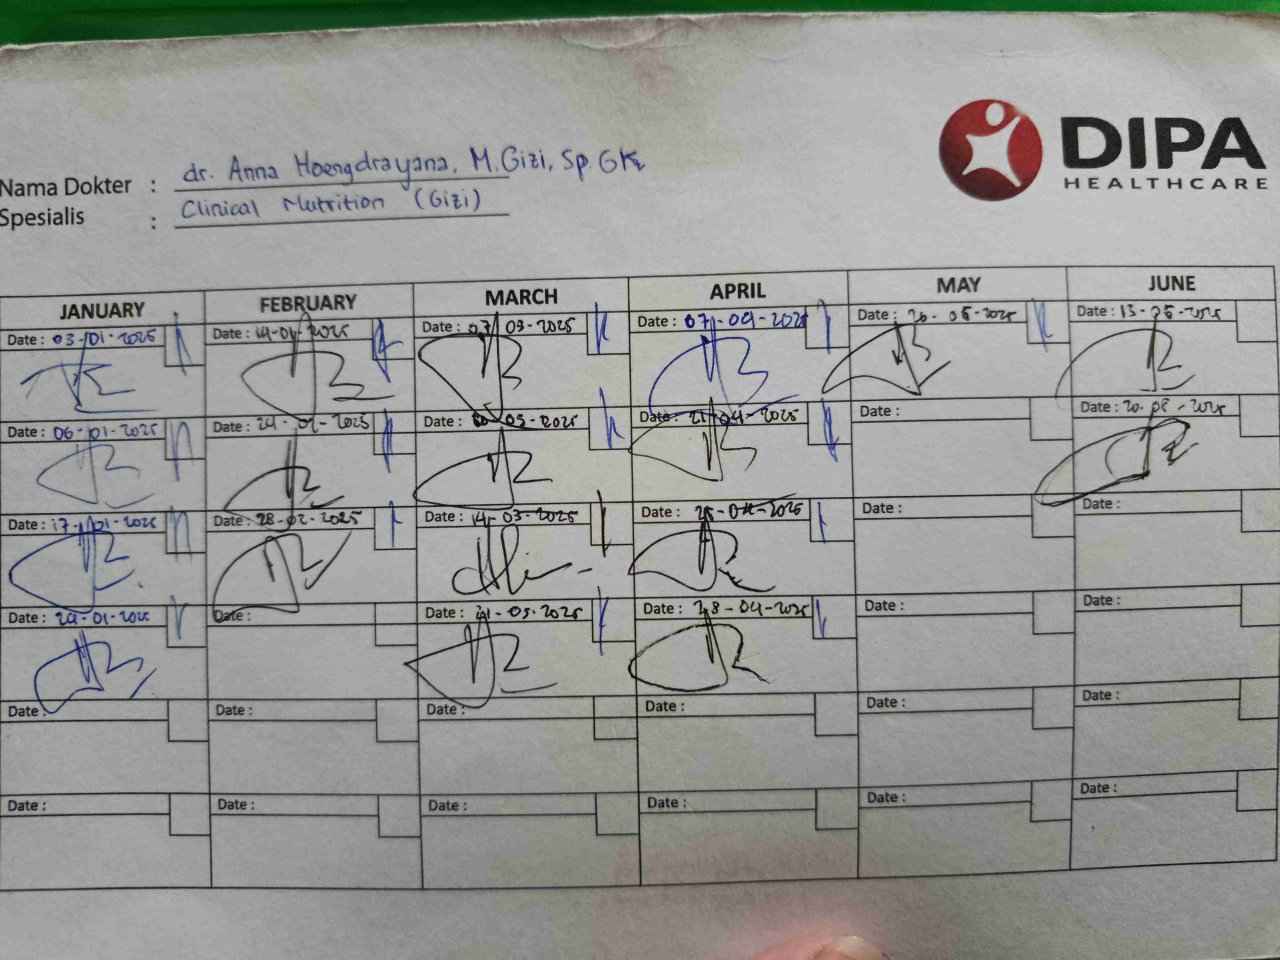 DIPA
HEALTHCARE
Nama Dokter : dr. Anna Hoengdrayana, M.Gizi, Sp.GK
Spesialis : Clinical Nutrition (Gizi)
JANUARY FEBRUARY MARCH APRIL MAY JUNE
Date : 03-01-2025 Date : -2025 Date : 07-03-2025 Date : 07-04-2025 Date : 20-05-2025 Date : 13-
Date : 06-01-2025 Date : 24-02-2025 Date : -03-2025 Date : 21-04-2025 Date : Date : 20-
Date : 17-01-2025 Date : 28-02-2025 Date : 14-03-2025 Date : 25-04-2025 Date : Date :
Date : 20-01-2025 Date : Date : 21-03-2025 Date : 28-04-2025 Date : Date :
Date : Date : Date : Date : Date : Date :
Date : Date : Date : Date : Date : Date :